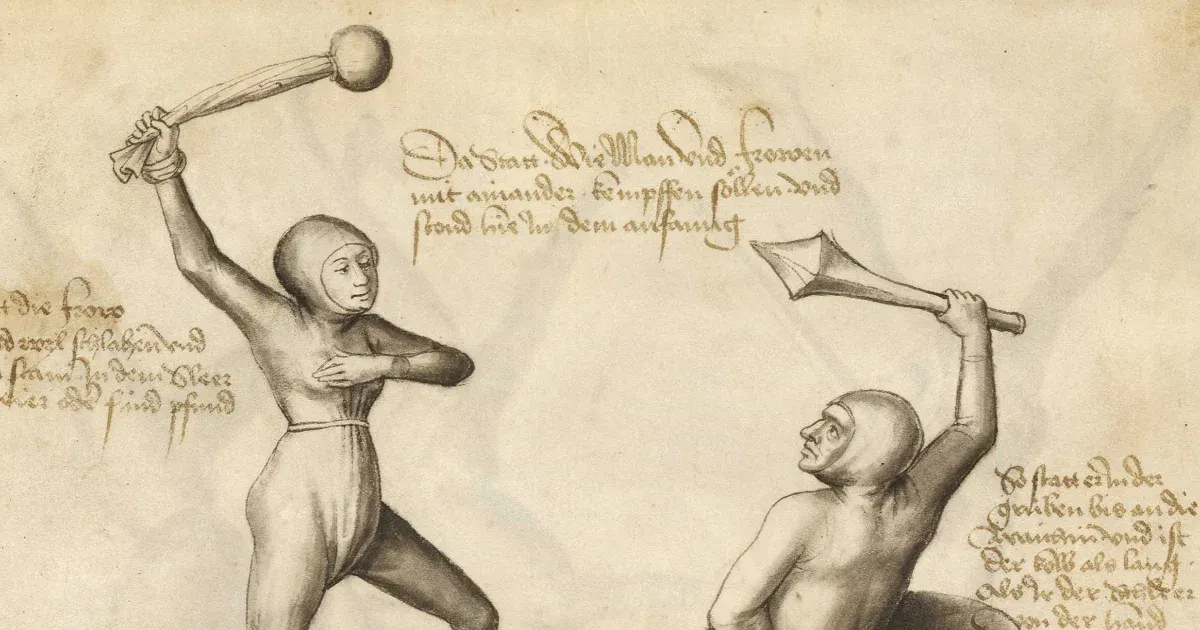 Da Statt Wie Man Und frowen
mit ainander kempffen söllen vnd
stond hie In dem anfanng
t die frow
d wol schlahen vnd
stain In dem Sleer
oder fünd pfund
So statt er In der
gruben bis an die
vnd ist
der kolb als lang
Als Ir der Schleer
von der hand